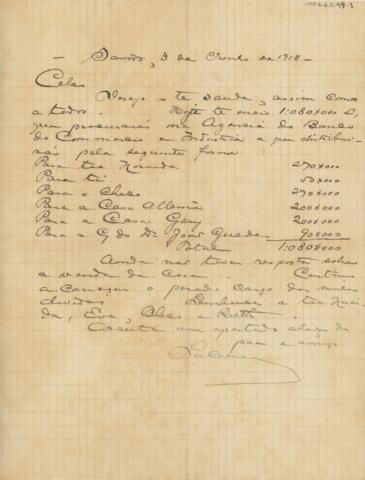 Santos, 3 de Junho de 1918
Celso
Desejo-te saude, assim como
a todos. Hoje te envio 1:080$000
que procurarás na Agencia do Banco
do Commercio e Industria e que distribui-
rás pela seguinte forma:
Para tia 270$000
Para ti 50$000
Para o 270$000
Para a Casa Allemã 200$000
Para a Casa Genny 200$000
Para a C. do Dr João Guedes 90$000
Total 1:080$000
Ainda não tive resposta sobre
a venda da casa. Continúo
a carregar o pesado cargo das minhas
dividas. Lembranças a tia
da, Eva, e Ruth.
Acceita um apertado abraço do
pae e amigo